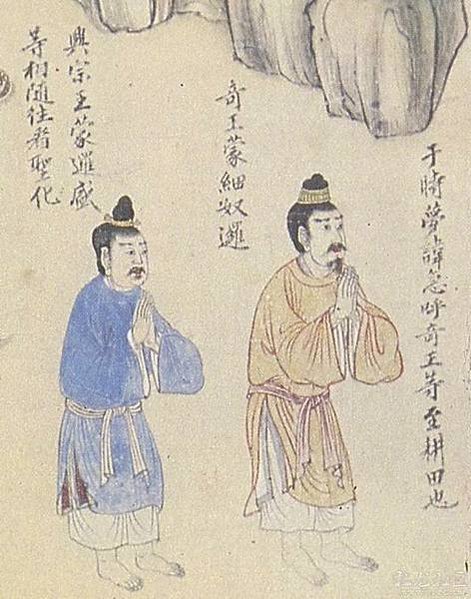 于時夢諱急呼奇王等至耕田也
奇王蒙細奴邏
興宗王蒙邏盛
等相隨往看聖化